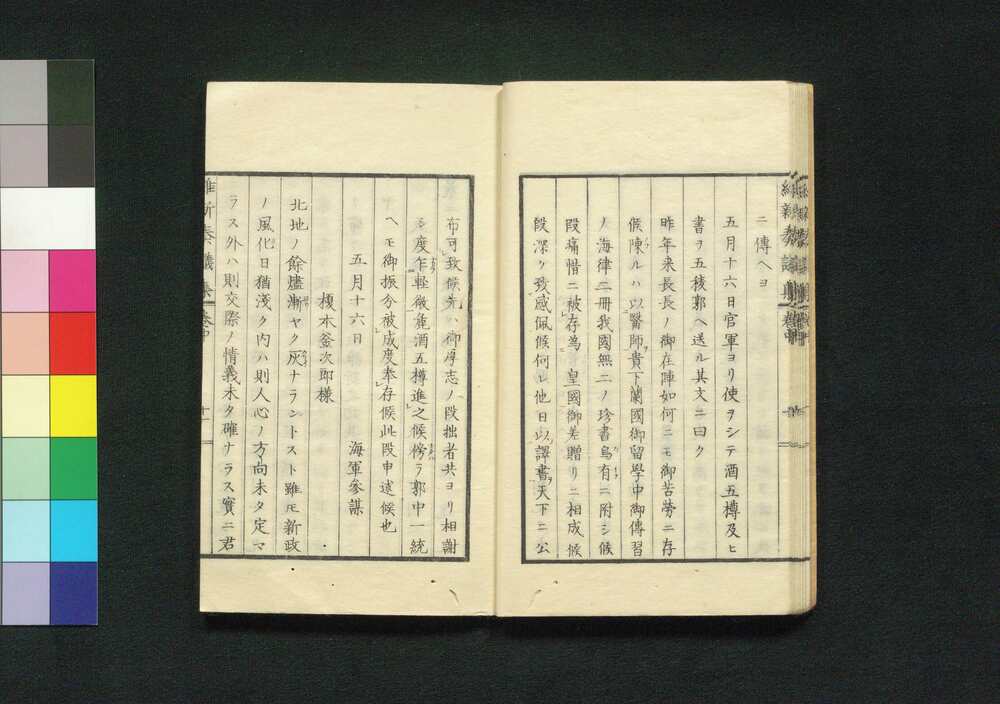 ニ傳ヘヨ
五月十六日官軍ヨリ使ヲシテ酒五樽及ヒ
書ヲ五稜郭ヘ送ル其文ニ曰ク
昨年来長長ノ御在陣如何ニモ御苦勞ニ存
候陳ルハ以醫師貴下蘭國御留學中御傳習
ノ海律二冊我國無二ノ珍書烏有ニ附シ候
段痛惜ニ被存為皇國御差贈リニ相成候
段深ク致感佩候何レ他日以譯書天下ニ公
布可致候先ハ御厚志ノ段拙者共ヨリ相謝
シ度乍輕微麁酒五樽進之候傍ラ郭中一統
ヘモ御振分被成度奉存候此段申述候也
五月十六日　海軍參謀
榎木釜次郎様
北地ノ餘燼漸ヤク灰ナラントスト雖モ新政
ノ風化日猶淺ク内ハ則人心ノ方向未タ定マ
ラス外ハ則交際ノ情義未タ確ナラス實ニ君
維新奏議集　卷中　十一